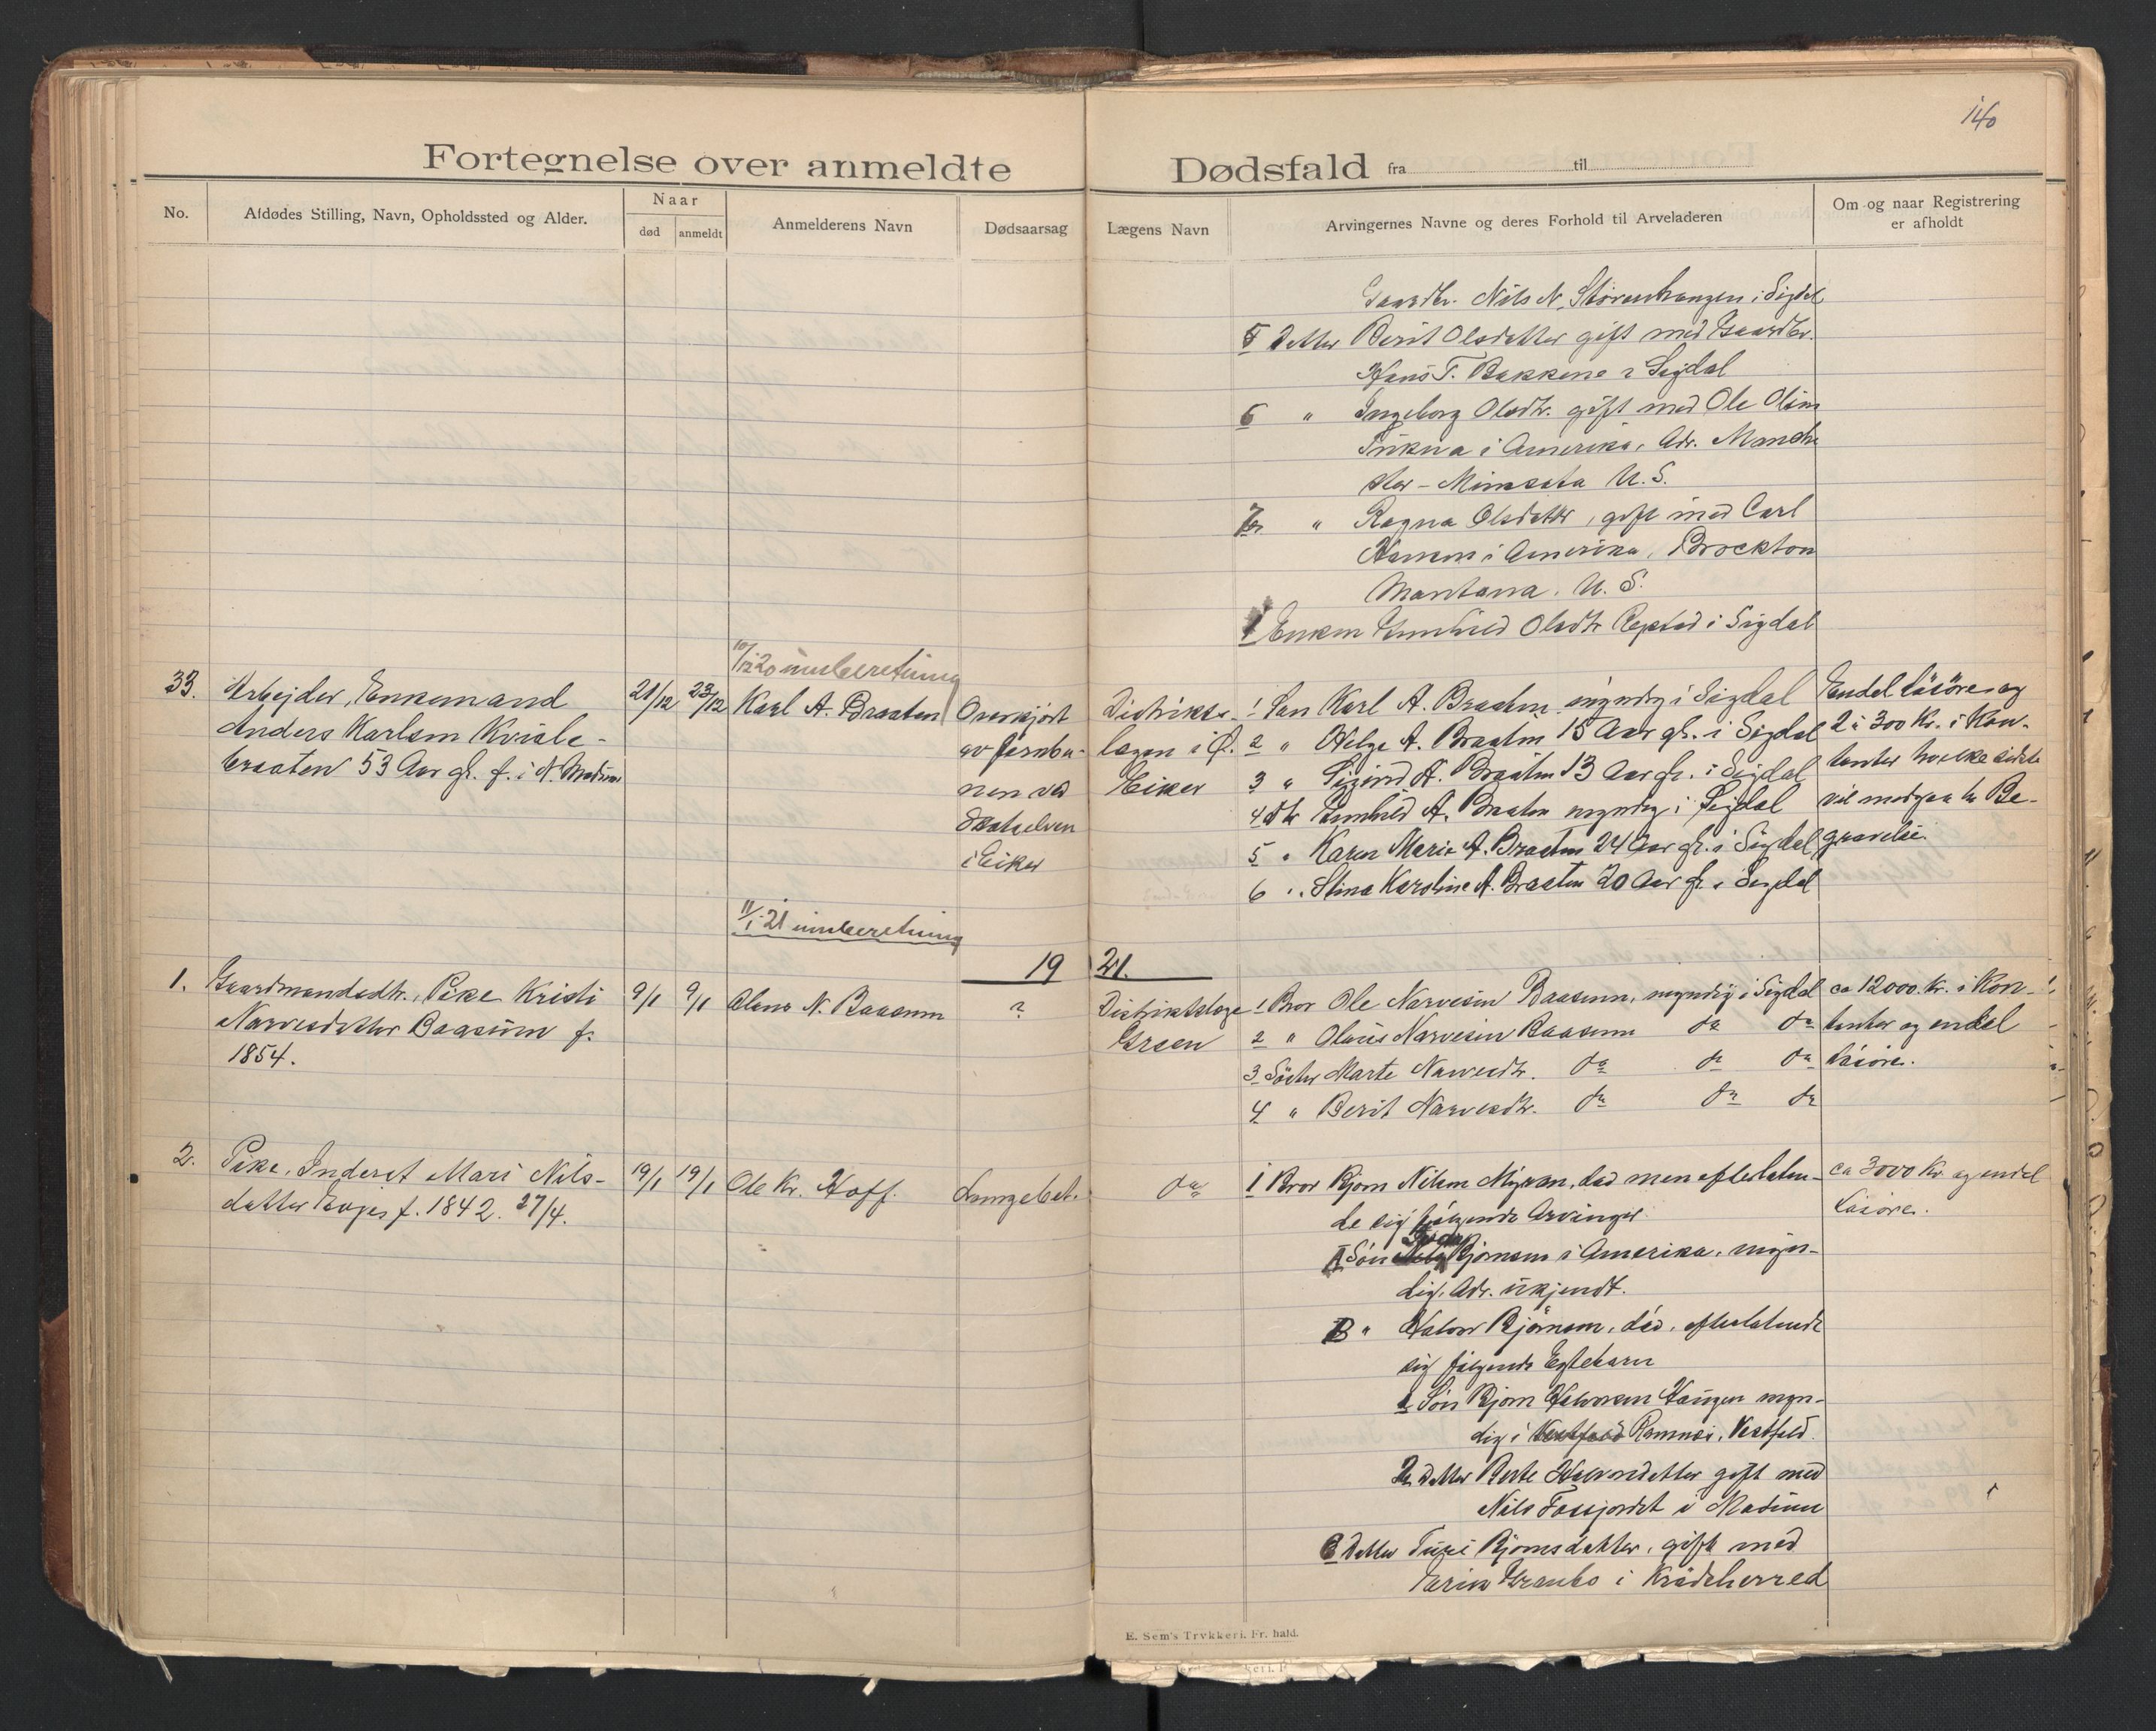 140
Fortegnelse over anmeldte Dødsfald fra til
No.
Afdødes Stilling, Navn, Opholdssted og Alder.
Naar
død
anmeldt
Anmelderens Navn
Dødsaarsag
Lægens Navn
Arvingernes Navne og deres Forhold til Arveladeren
Om og naar Registrering
er afholdt
Gaardbr. Nils N. i Sigdal
5 Datter Berit Olsdatter gift med Gaardbr.
Hans T. Bakkene i Sigdal
6 " Ingeborg Olsdtr. gift med Ole Olsen
i Amerika, Adr. Manche
ster - Minesota U.S.
7 " Ragna Olsdatter, gift med Carl
Hansen i Amerika, Brockton
Montana. U.S.
Enken Gunhild Olsdtr i Sigdal
10/12 20 innberetning
33.
Arbejder, Enkemand
Anders Karlsen Kvisle-
braaten 53 Aar gl. f. i N. Modum
21/12
23/12
Karl A. Braaten
Overkjørt
av jernba-
nen ved
i Eiker
Distrikts-
lægen i Ø.
Eiker
1 Søn Karl A. Braaten myndig i Sigdal
2 " Helge A. Braaten 15 Aar gl. i Sigdal
3 " Sigurd A. Braaten 13 Aar gl. i Sigdal
4 dtr Gunhild A. Braaten myndig i Sigdal
5 " Karen Marie A. Braaten 24 Aar gl. i Sigdal
6 " Stina Karoline A. Braaten 20 Aar gl. i Sigdal
Endel løsøre og
2 à 300 Kr. i Kon-
tanter hvilke sidste
vil medgaa til Be-
gravelse.
11/1 21 innberetning
1921.
1.
Gaardmandsdtr., Pike Kristi
Narvesdatter Baasum f.
1854.
9/1
9/1
Olaus N. Baasum
?
Distriktslæge
Green
1 Bror Ole Narvesen Baasum, myndig i Sigdal
2 " Olaus Narvesen Baasum do do
3 Søster Marte Narvesdtr. do do do
4 " Berit Narvesdtr. do do do
ca 12000 kr. i Kon-
tanter og endel
løsøre.
2.
Pike, Inderst Mari Nils-
datter f. 1842. 27/4.
19/1
19/1
Ole Kr. Hoff.
Lungebet.
do
1 Bror Bjørn Nilsen Myran, død men efterlaten-
de sig følgende Arvinger
A Søn Bjørnsen i Amerika, myn-
dig, Adr. ukjendt.
B " Halvor Bjørnsen, død, efterlatende
sig følgende Egtebarn
1 Søn Bjørn Halvorsen Haugen myn-
dig i Ramnes, Vestfold.
2 datter Berte Halvorsdatter gift med
Nils Fossjordet i Modum
C Datter Turi Bjørnsdatter, gift med
Erik i Krødsherred
ca 3000 Kr og endel
Løsøre.
E. Sem's Trykkeri. Fr. hald.